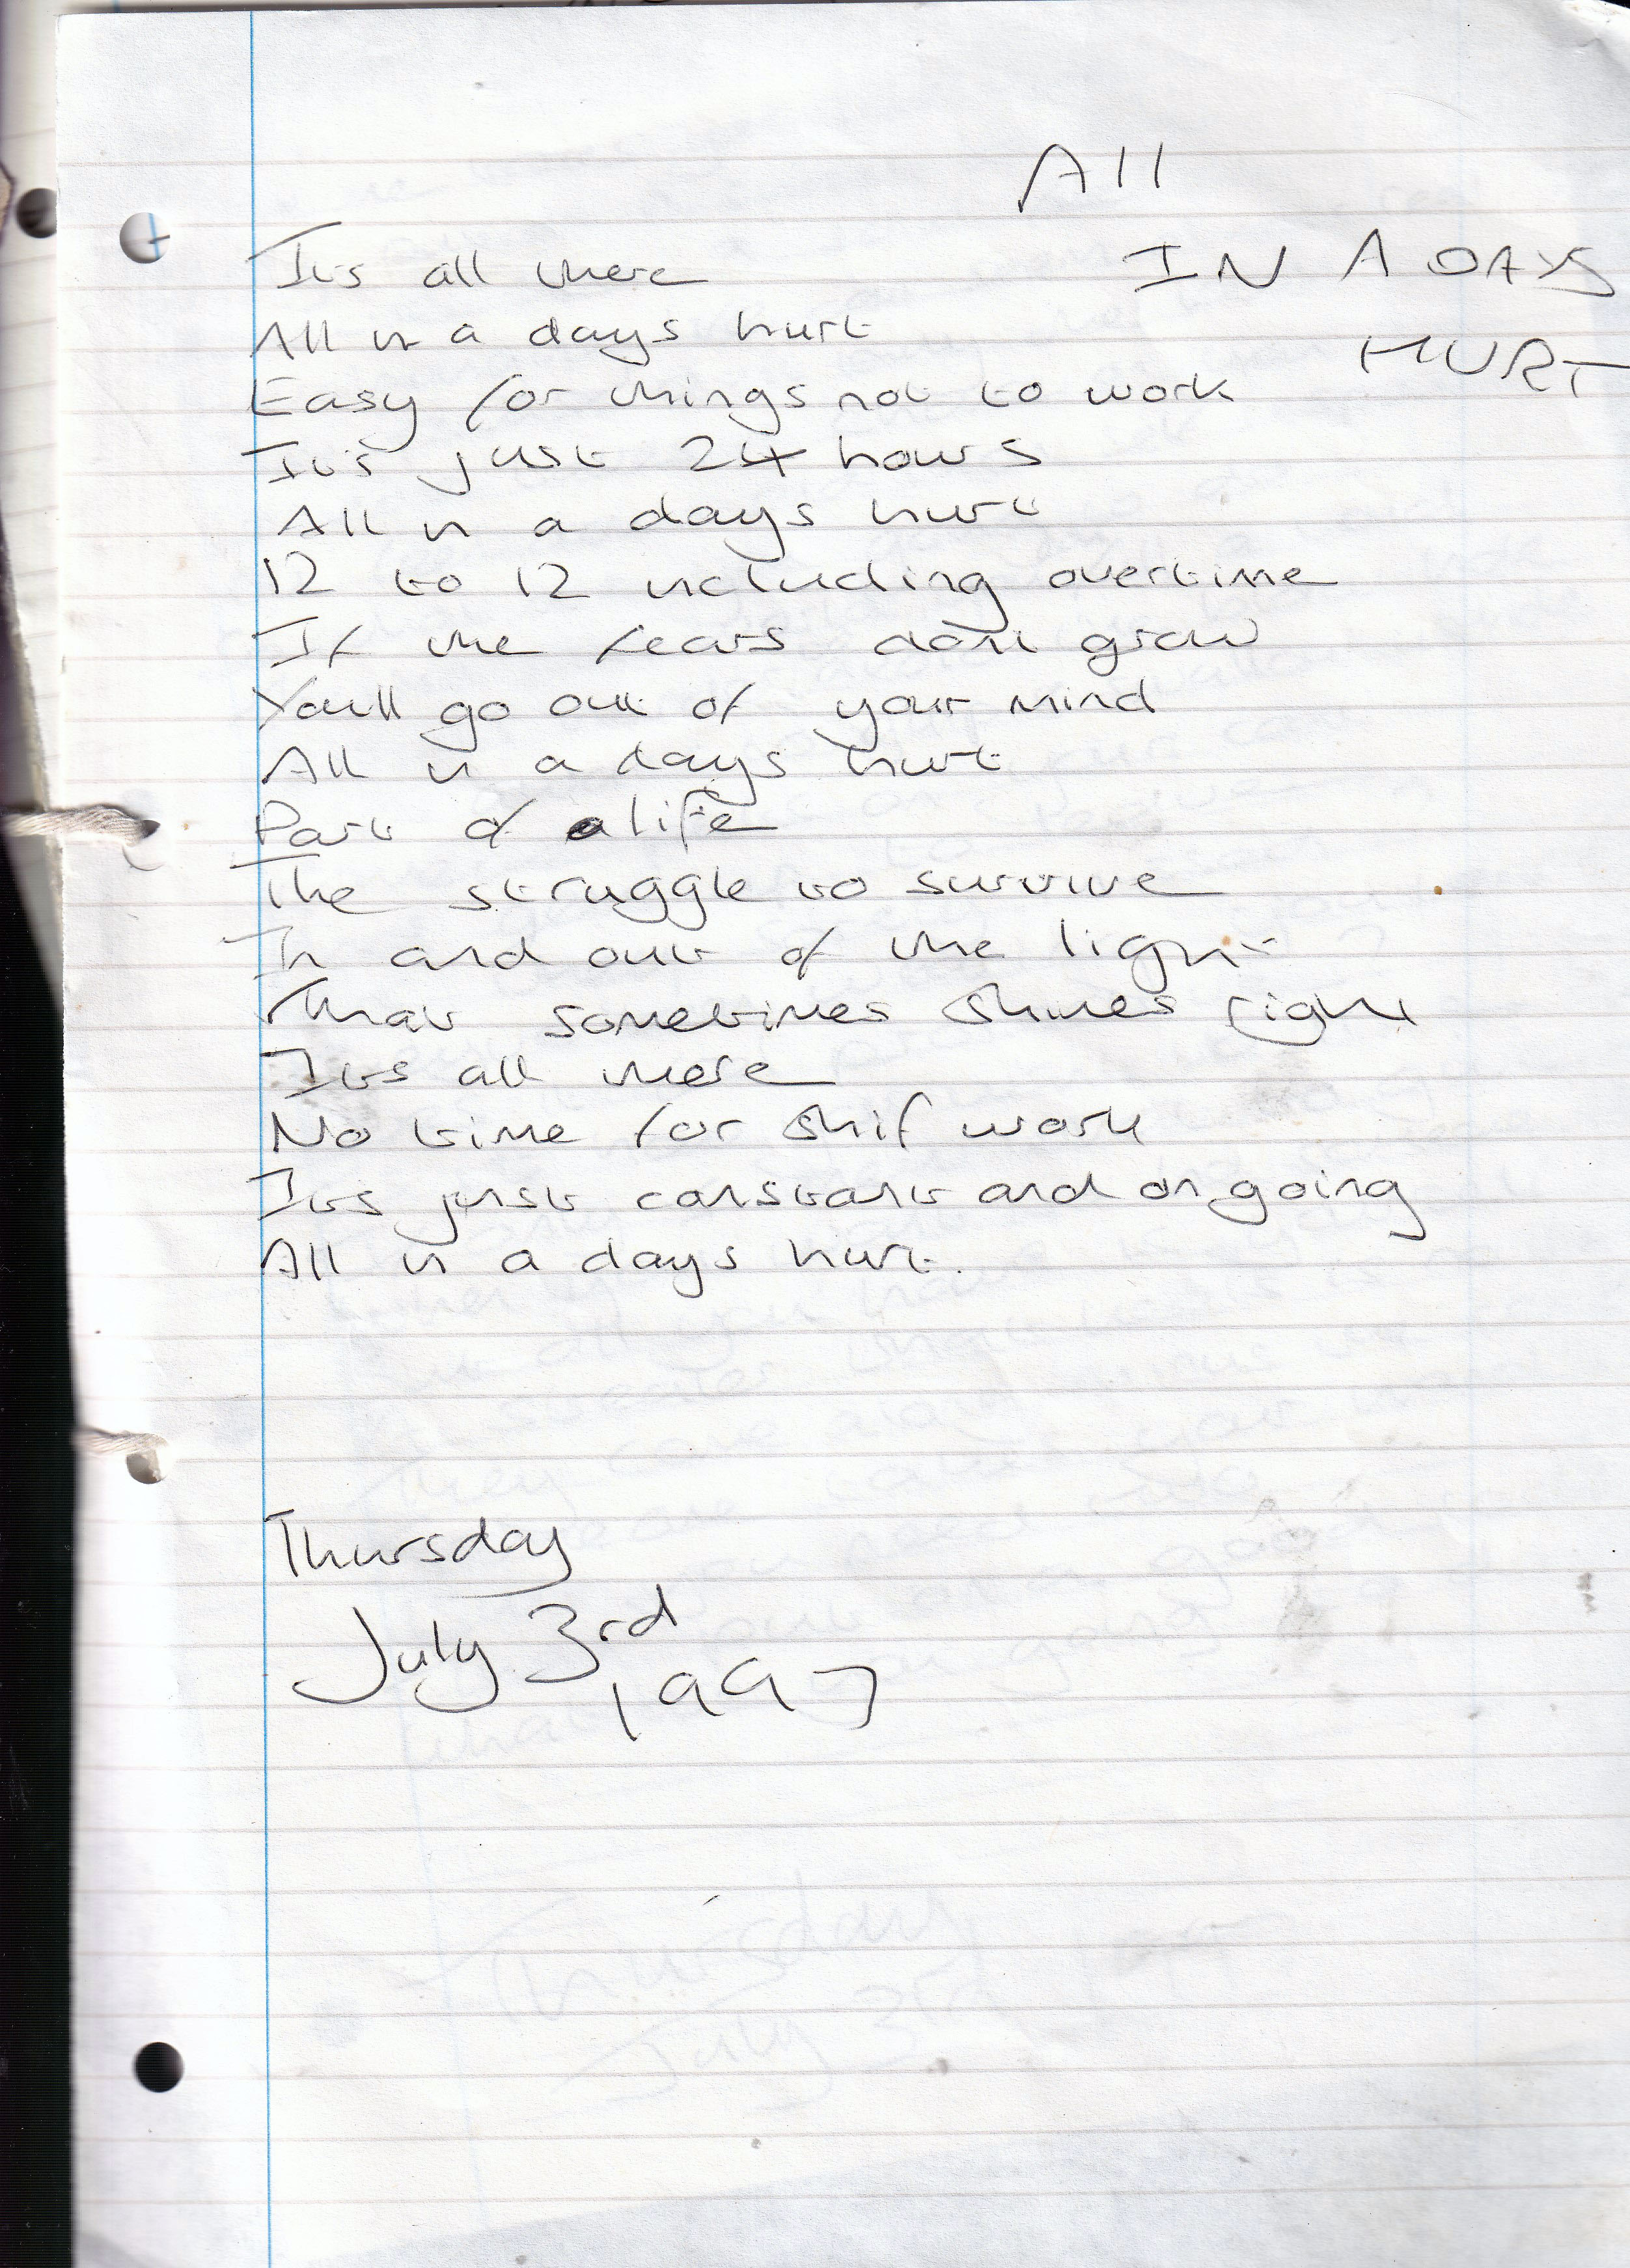 All
IN A DAYS
HURT
Its all there
All in a days hurt
Easy for things not to work
It's just 24 hours
All in a days hurt
12 to 12 including overtime
If the fears dont grow
Youll go out of your mind
All in a days hurt
Part of a life
The struggle to survive
In and out of the light
That sometimes shines right
Its all there
No time for shif work
Its just constant and on going
All in a days hurt.
Thursday
July 3rd
1997